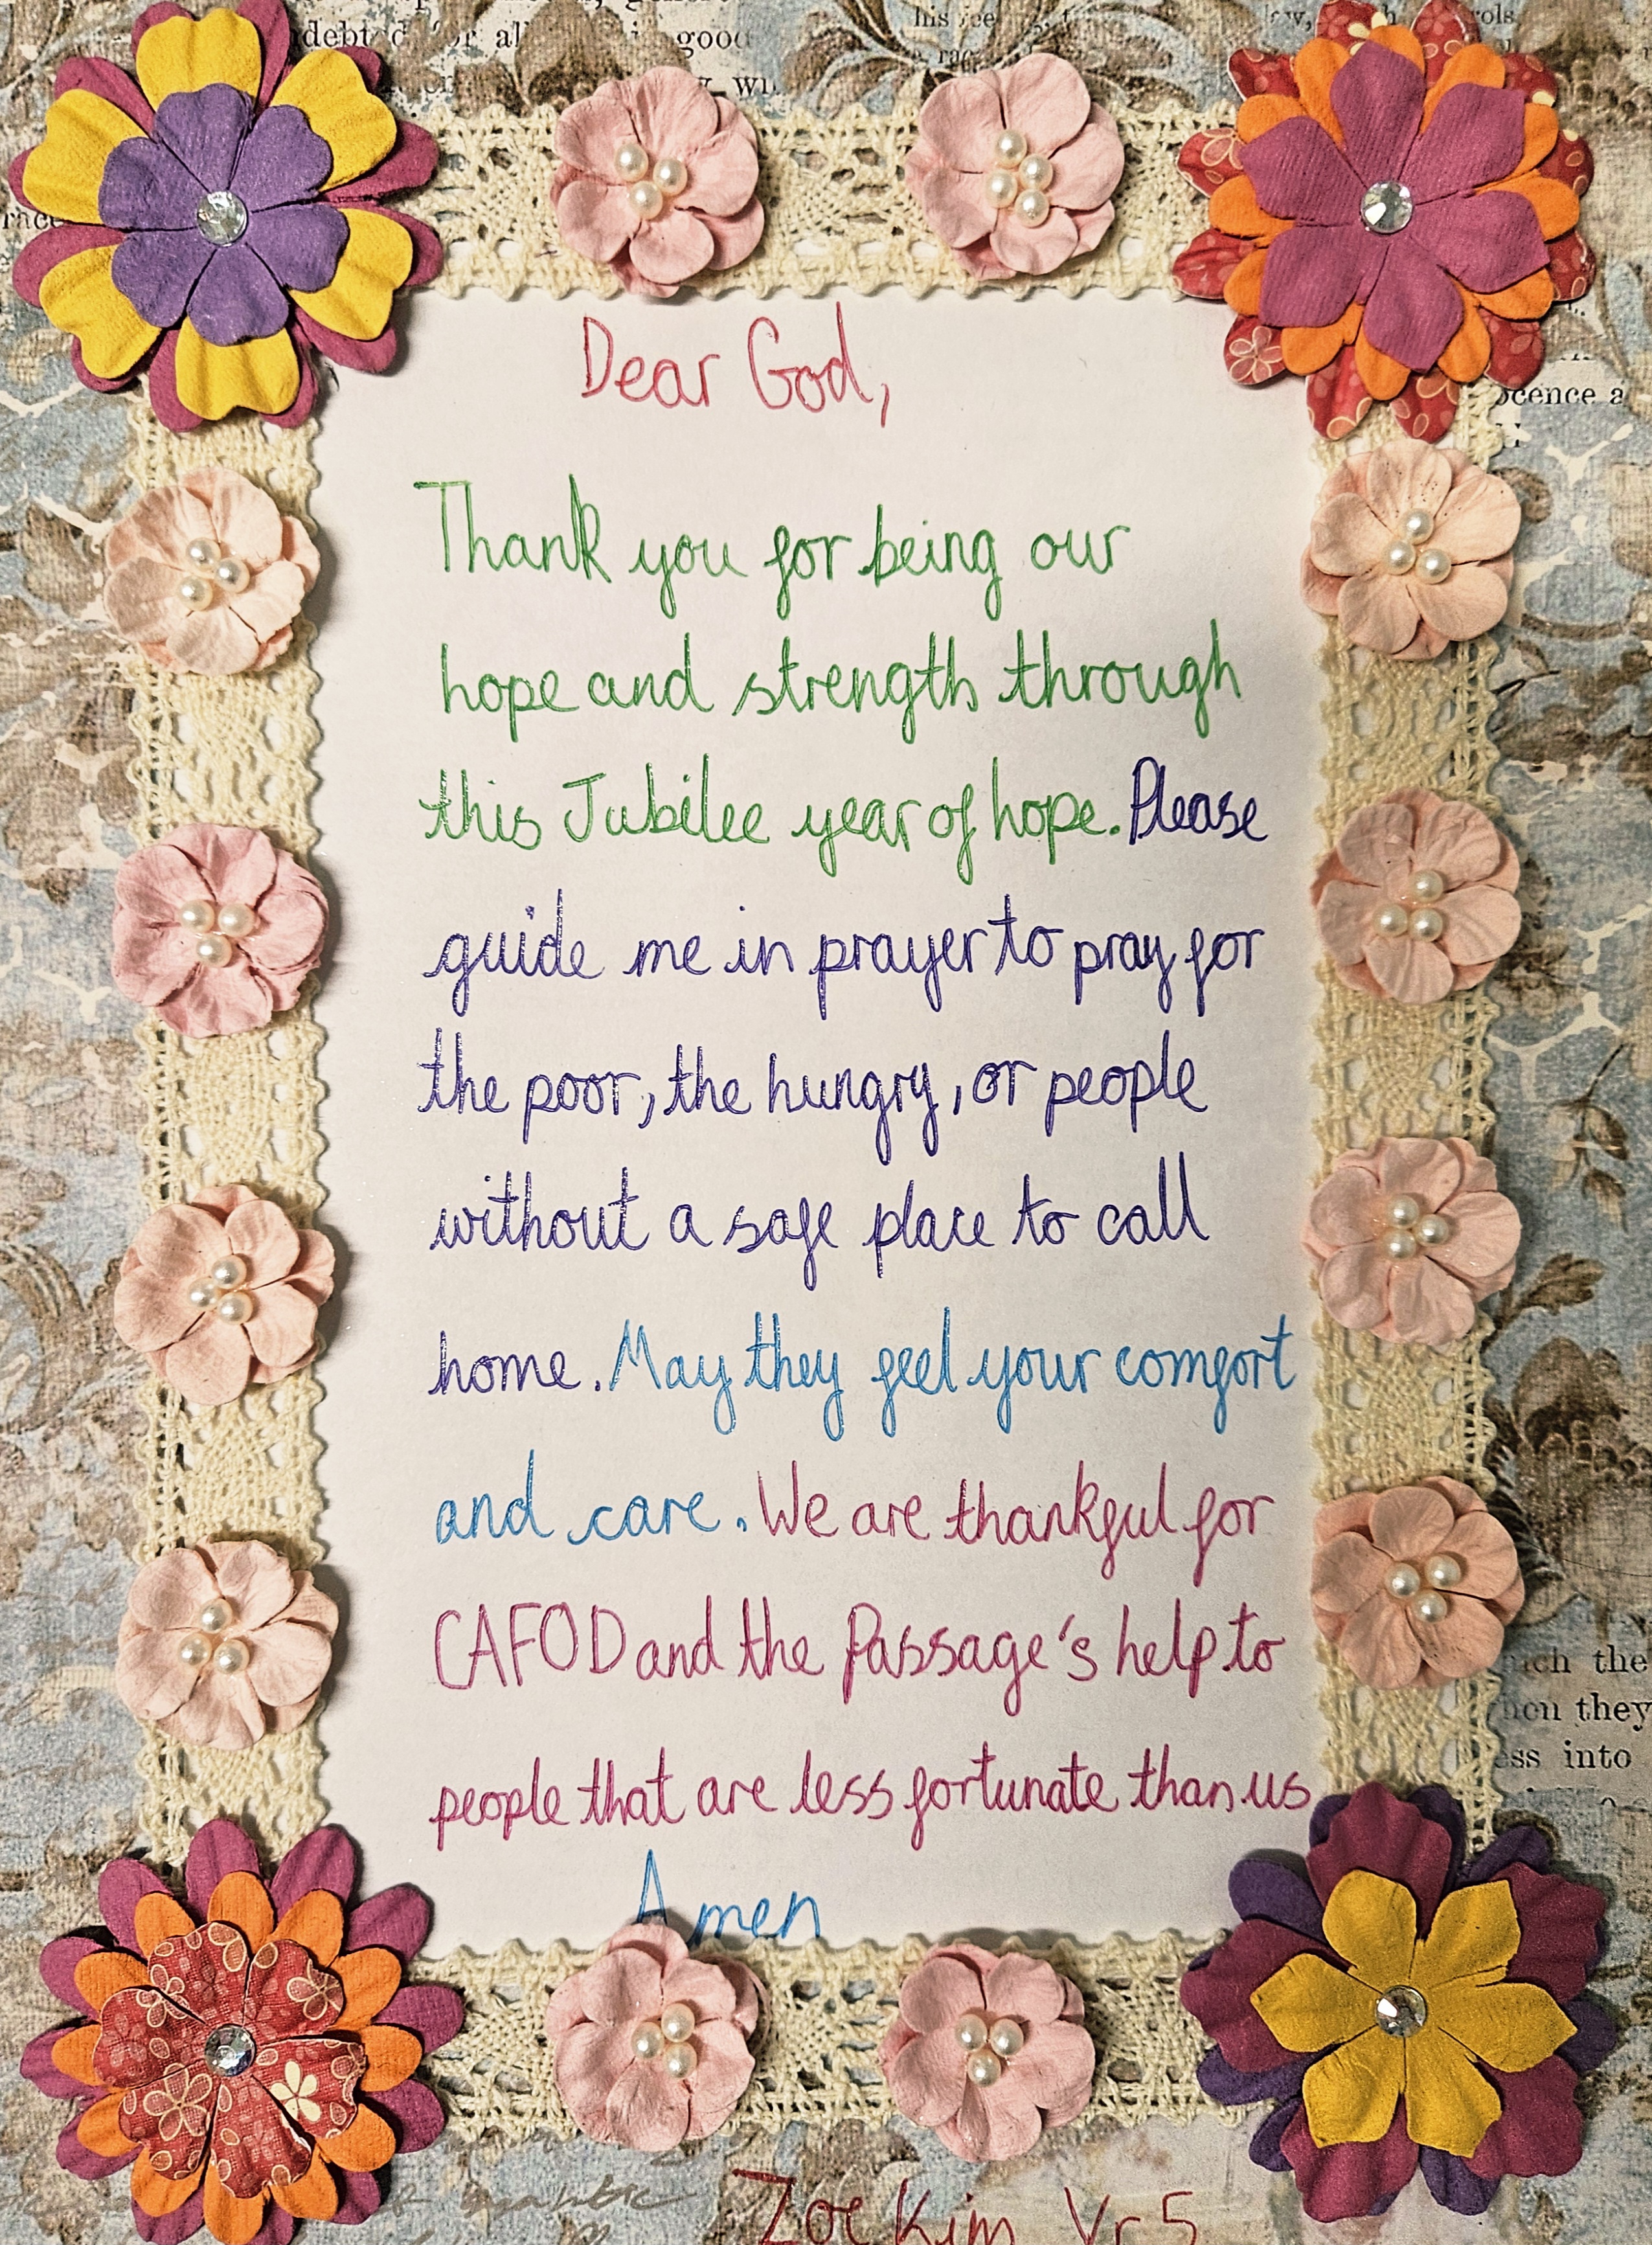 debt
all
good
his
rols
race
ocence a
Dear God,
Thank you for being our
hope and strength through
this Jubilee year of hope. Please
guide me in prayer to pray for
the poor, the hungry, or people
without a safe place to call
home. May they feel your comfort
and care. We are thankful for
CAFOD and the Passage's help to
people that are less fortunate than us
Amen
the
they
ess into
Zoe Kim Yr 5